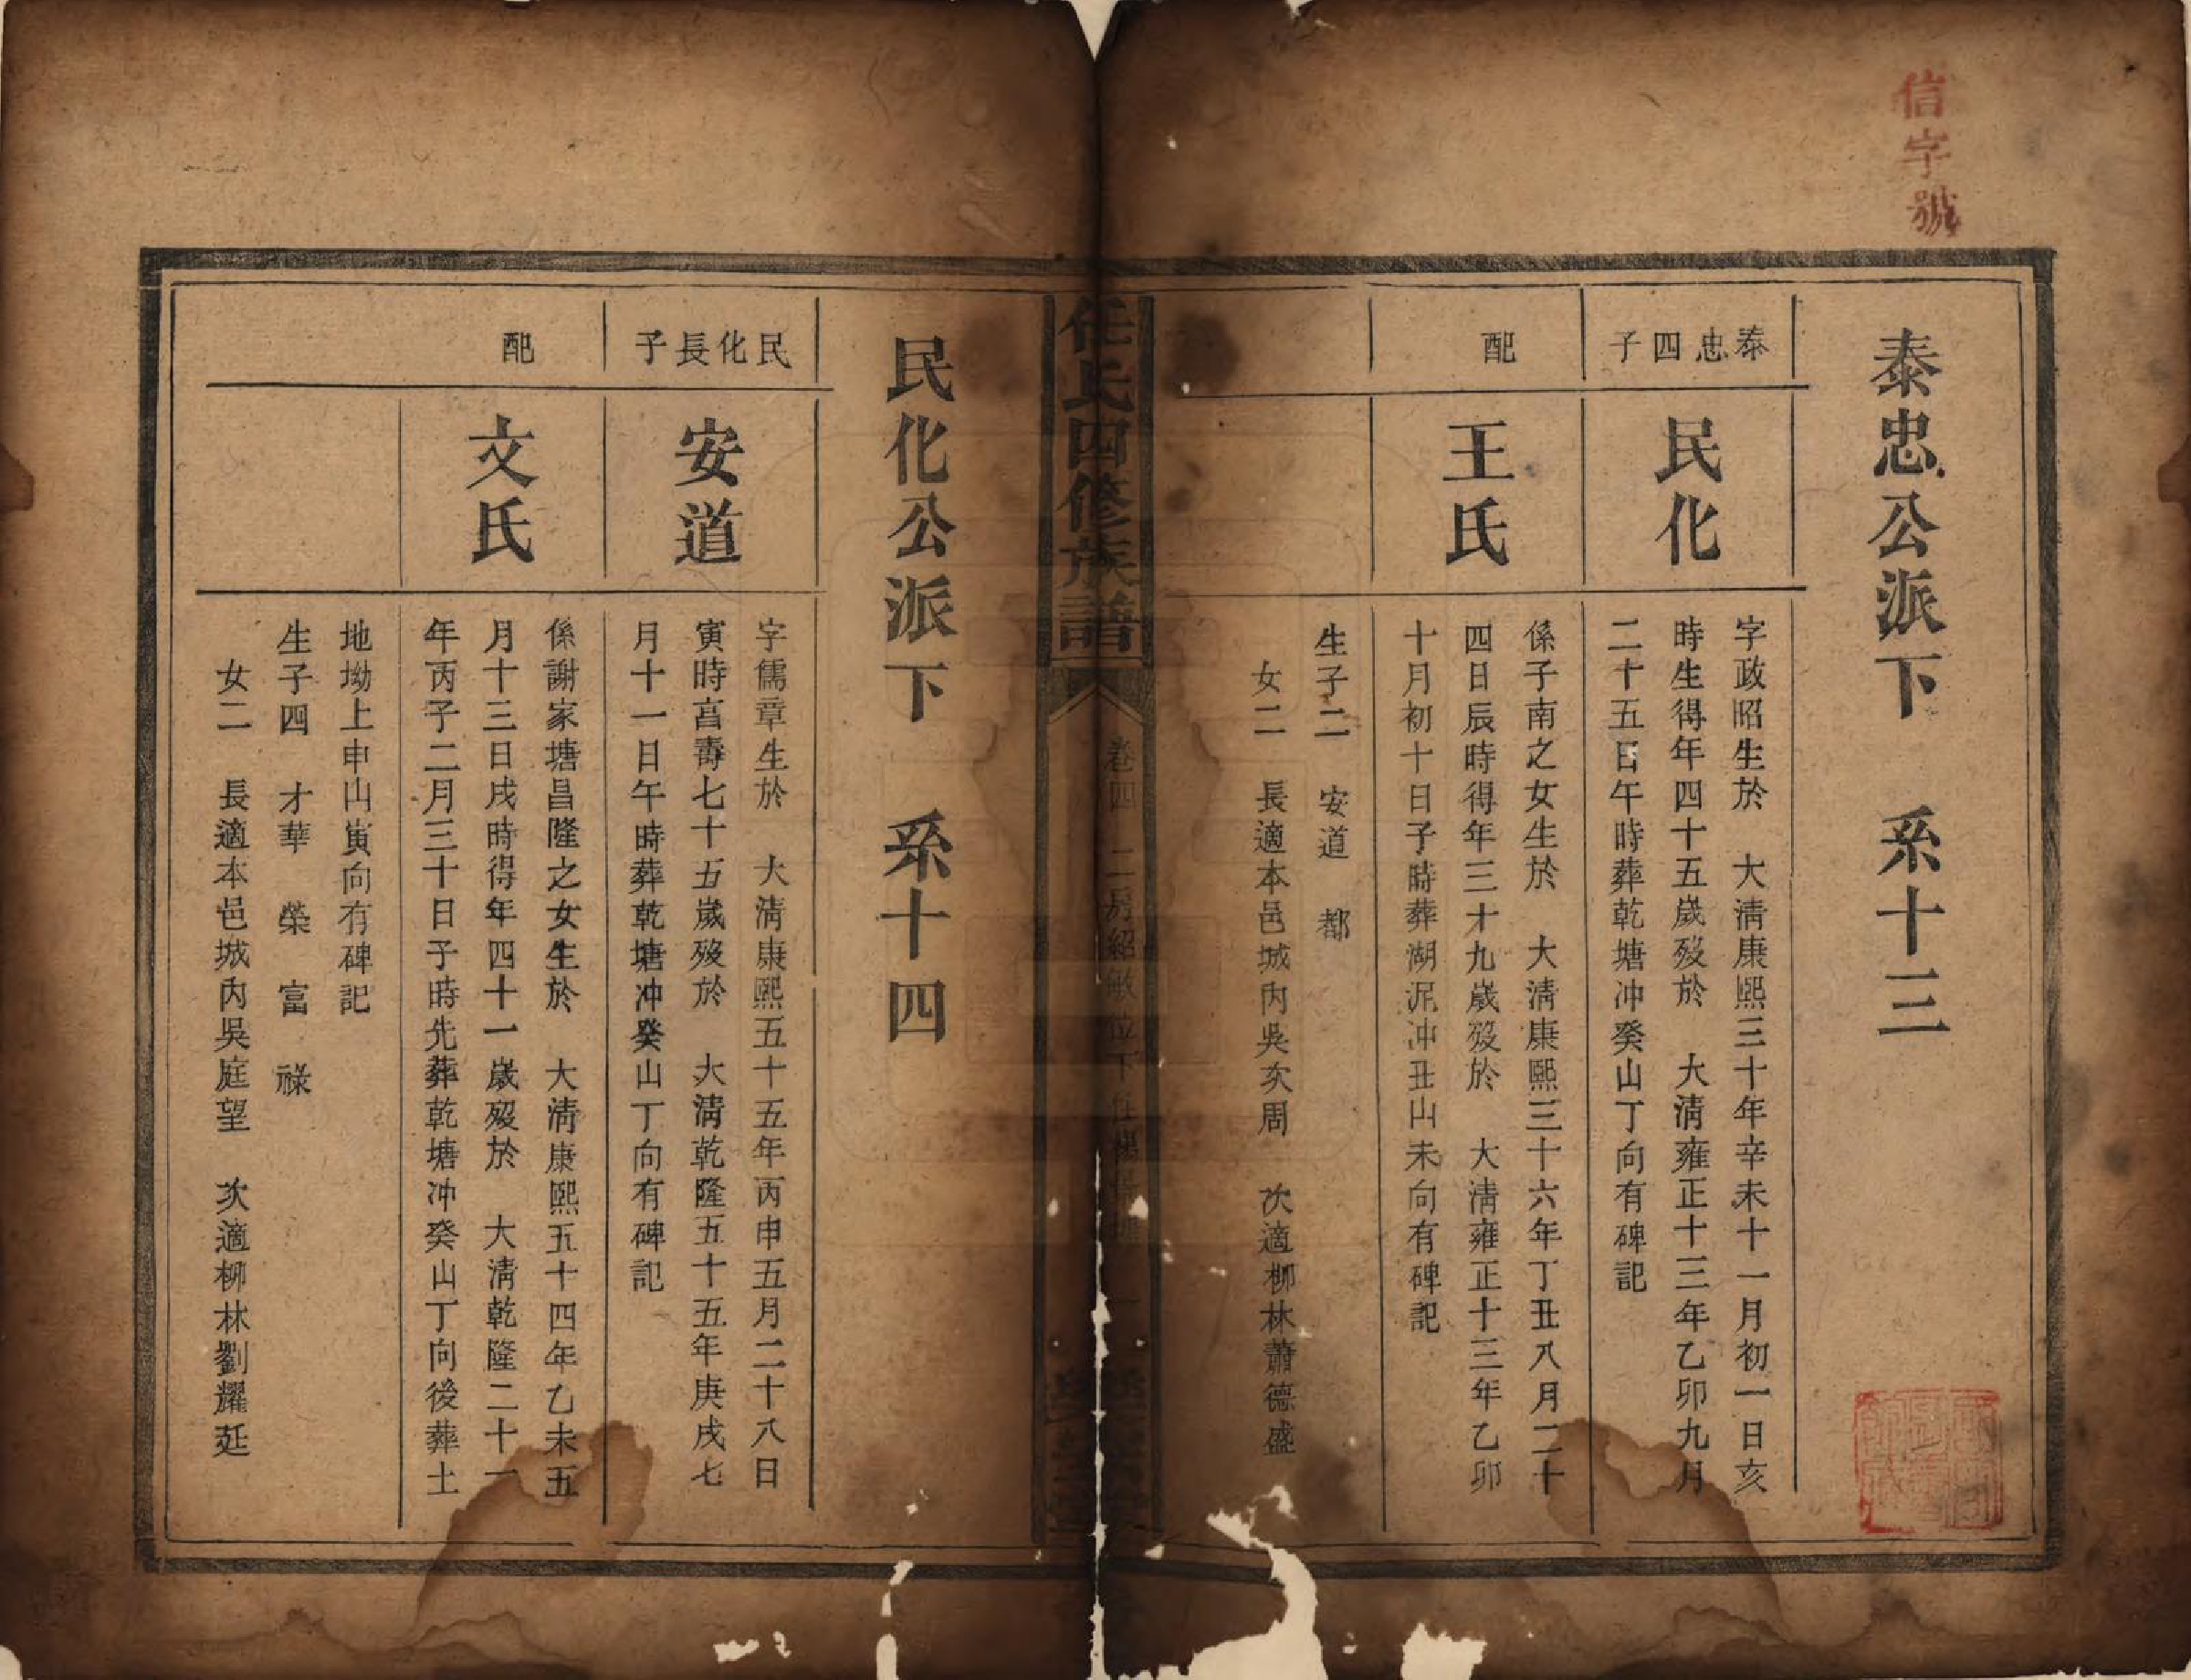 信字號
泰忠公派下 系十三
泰忠四子
民化
字政昭生於 大清康熙三十年辛未十一月初一日亥
時生得年四十五歲歿於 大清雍正十三年乙卯九月
二十五日午時葬乾塘冲癸山丁向有碑記
配
王氏
係子南之女生於 大清康熙三十六年丁丑八月二十
四日辰時得年三十九歲歿於 大清雍正十三年乙卯
十月初十日子時葬湖泥冲丑山未向有碑記
生子二 安道 都
女二 長適本邑城內吳亥周 次適柳林蕭德盛
任氏四修族譜
卷四 二房紹敏位下
民化公派下 系十四
民化長子
安道
字儒章生於 大清康熙五十五年丙申五月二十八日
寅時亯壽七十五歲歿於 大清乾隆五十五年庚戌七
月十一日午時葬乾塘冲癸山丁向有碑記
配
文氏
係謝家塘昌隆之女生於 大清康熙五十四年乙未五
月十三日戌時得年四十一歲歿於 大清乾隆二十一
年丙子二月三十日子時先葬乾塘冲癸山丁向後葬土
地坳上申山寅向有碑記
生子四 才華 榮 富 祿
女二 長適本邑城內吳庭望 次適柳林劉耀廷